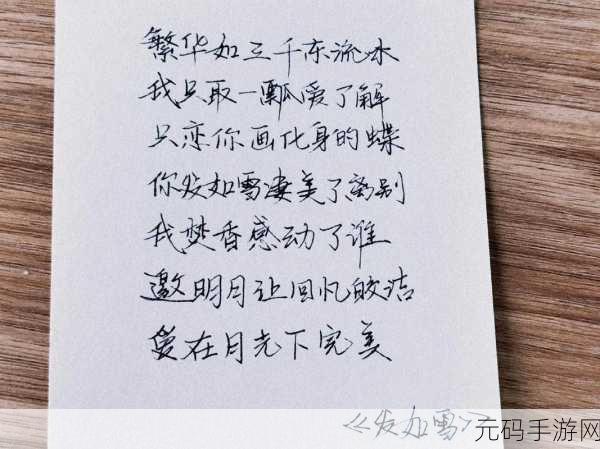 繁华如三千东流水
我只取一瓢爱了解
只恋你画化身的蝶
你发如雪凄美了离别
我焚香感动了谁
邀明月让回忆皎洁
爱在月光下完美
《发如雪》
元码手游网